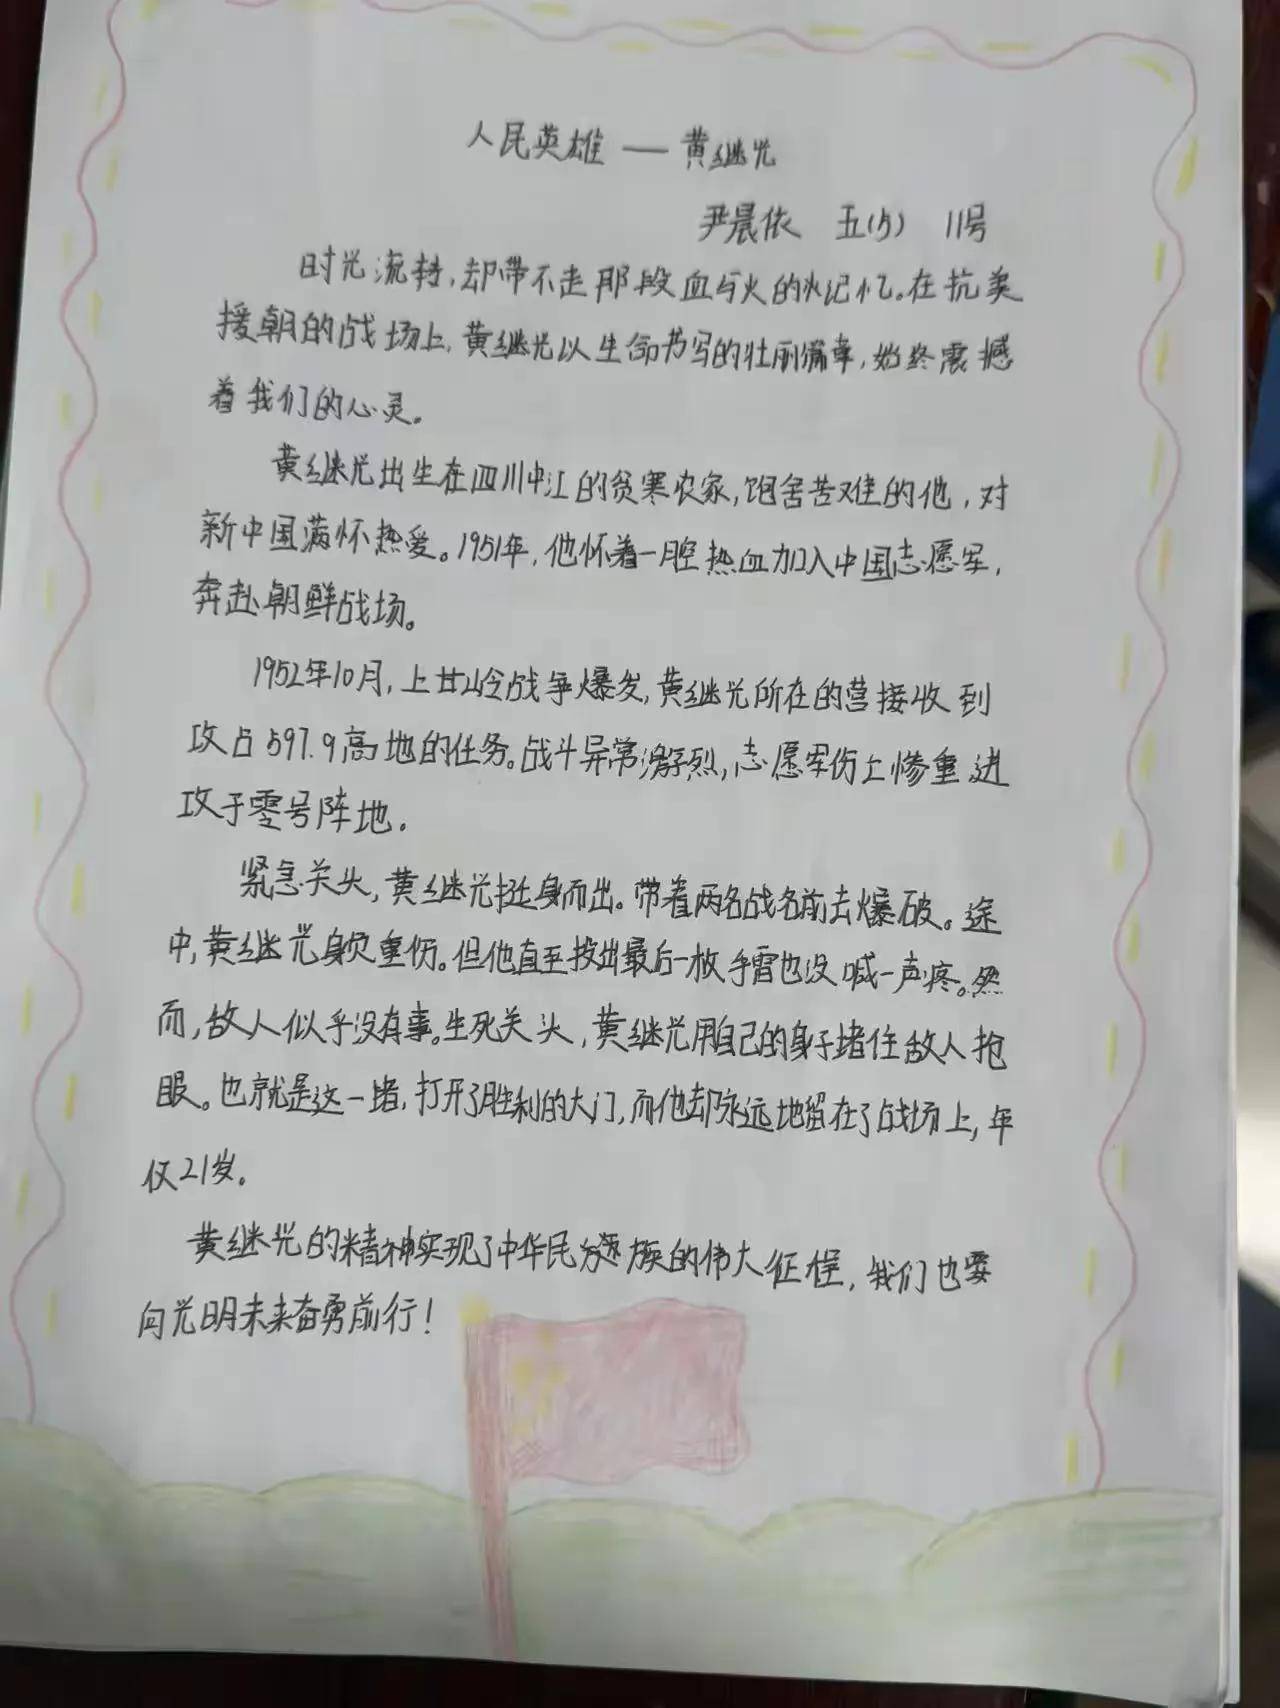 人民英雄——黄继光
尹晨依 五(5) 11号
时光流转,却带不走那段血与火的记忆。在抗美
援朝的战场上,黄继光以生命书写的壮丽篇章,始终震撼
着我们的心灵。
黄继光出生在四川中江的贫寒农家,饱含苦难的他,对
新中国满怀热爱。1951年,他怀着一腔热血加入中国志愿军,
奔赴朝鲜战场。
1952年10月,上甘岭战争爆发,黄继光所在的营接收到
攻占597.9高地的任务。战斗异常激烈,志愿军伤亡惨重,进
攻于零号阵地。
紧急关头,黄继光挺身而出。带着两名战名前去爆破。途
中,黄继光身负重伤。但他直至投出最后一枚手雷也没喊一声疼。然
而,敌人似乎没有事。生死关头,黄继光用自己的身子堵住敌人抢
眼。也就是这一堵,打开了胜利的大门,而他却永远地留在了战场上,年
仅21岁。
黄继光的精神实现了中华民族的伟大征程,我们也要
向光明未来奋勇前行!